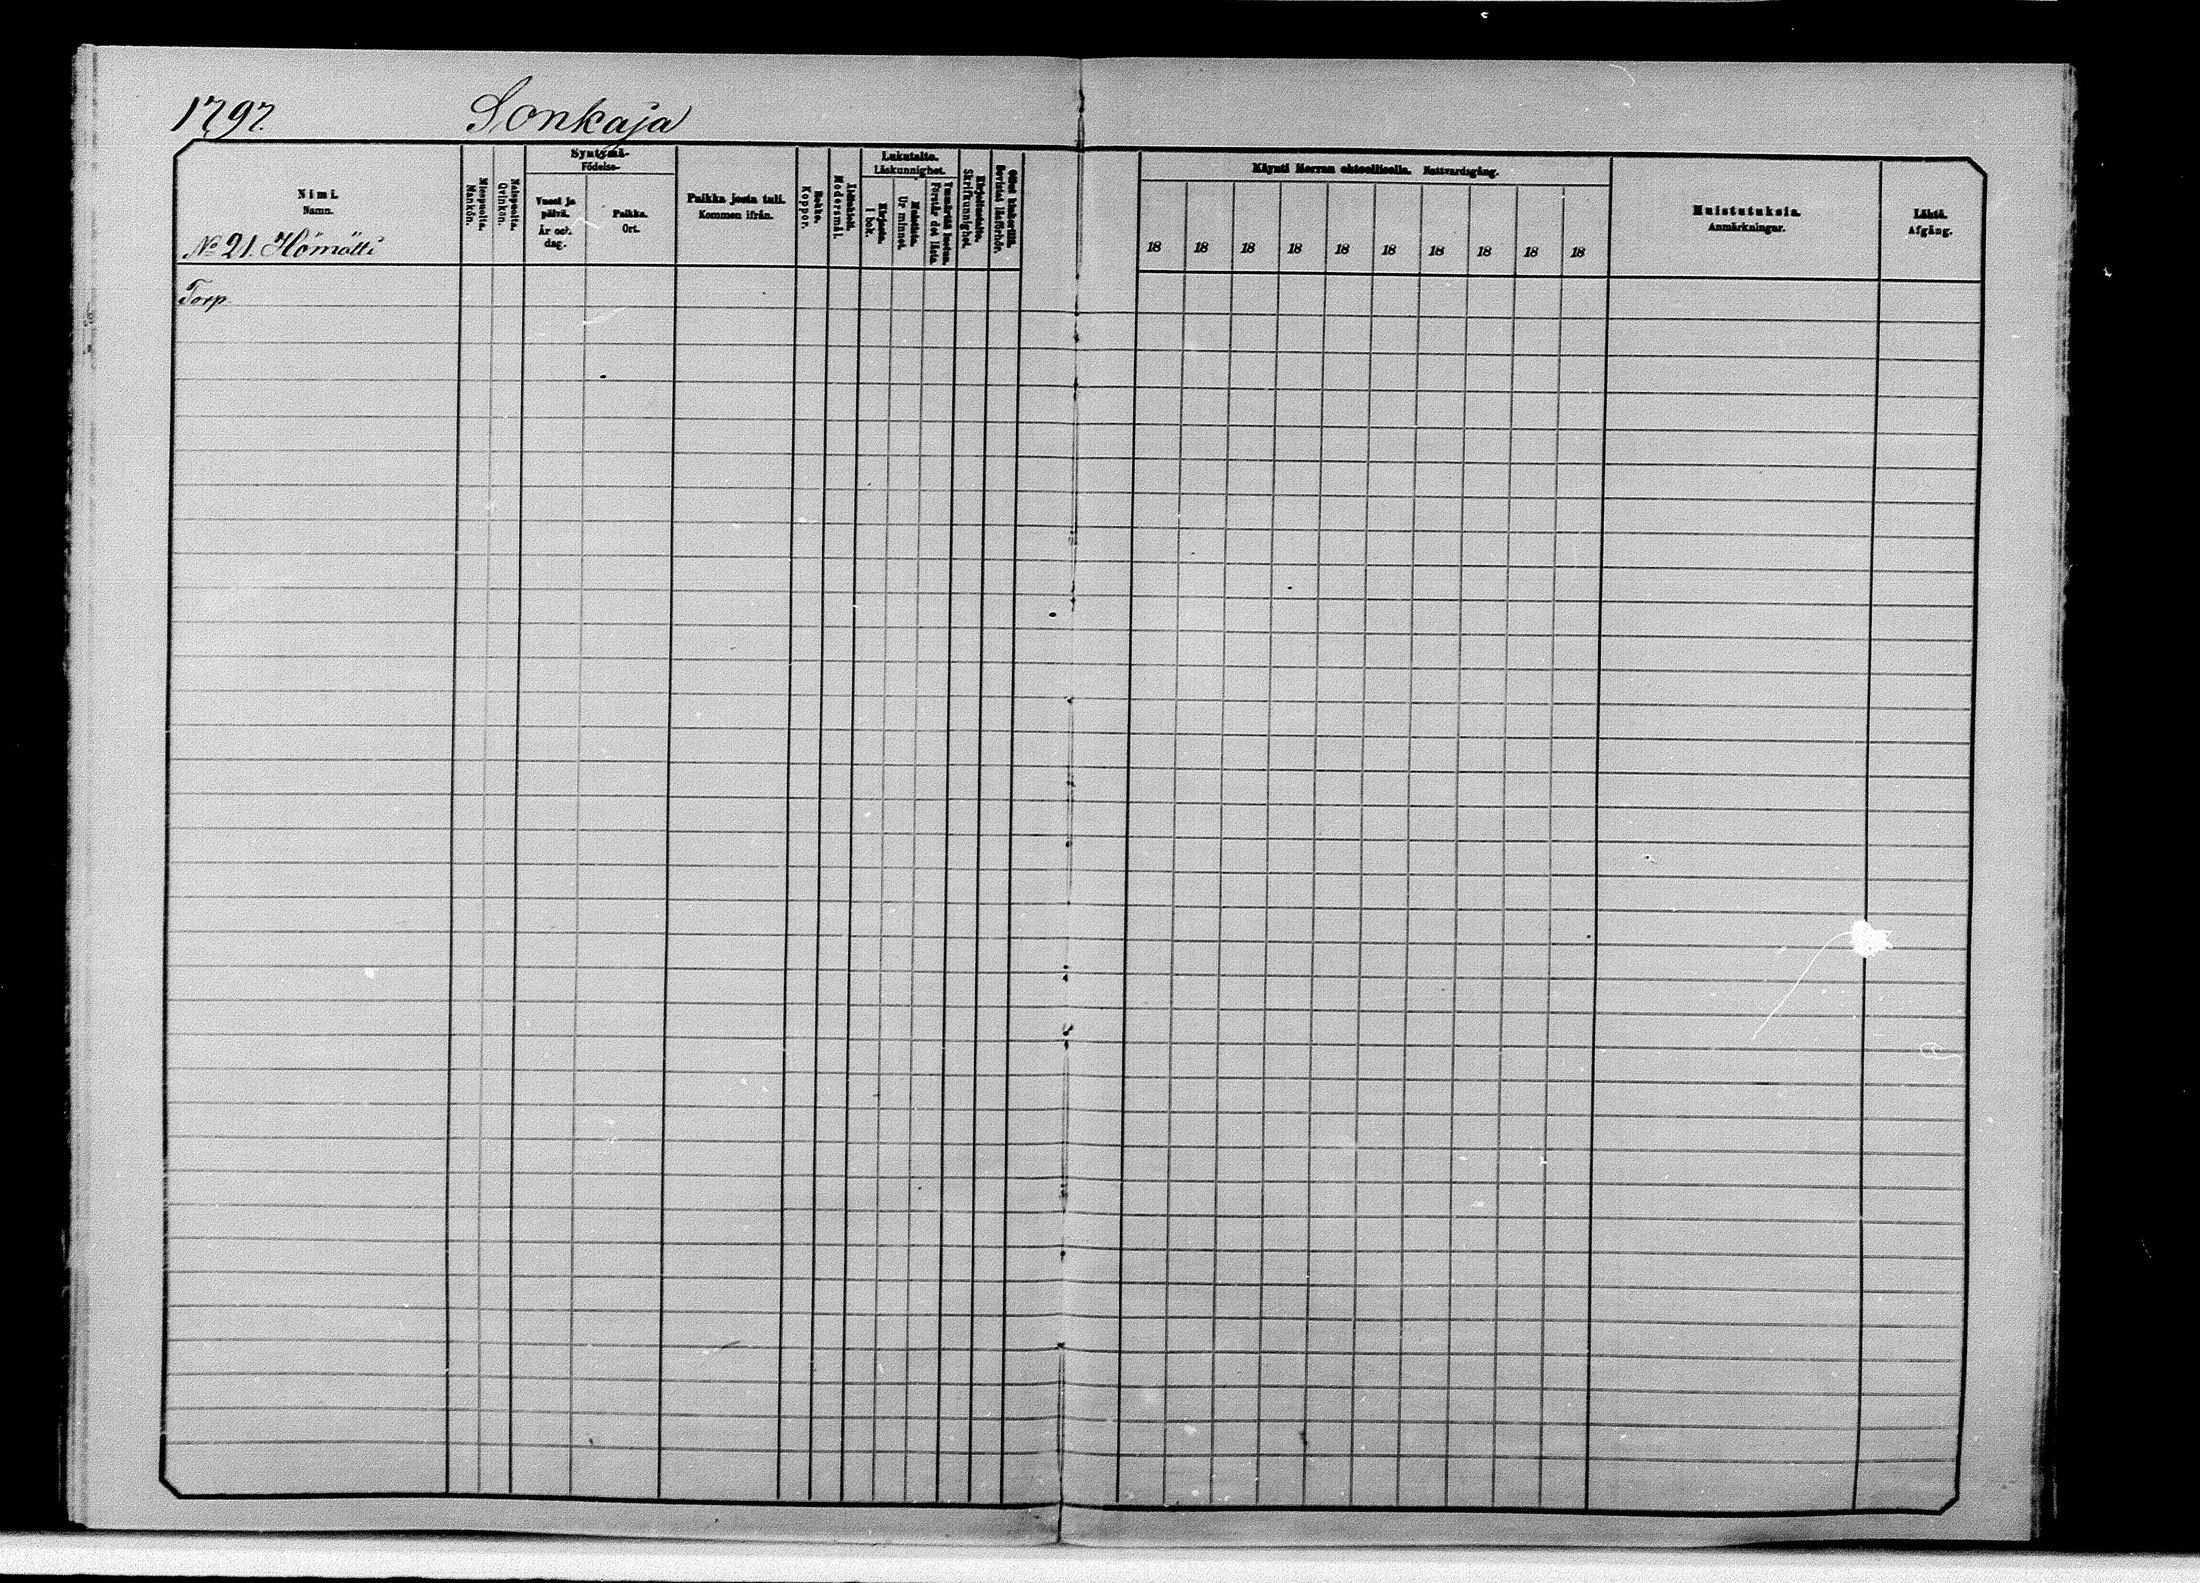 1797.
Sonkaja
Nimi.
Namn.
№ 21. Hömötti
Miespuolia.
Mankön.
Naispuolia.
Qvinkön.
Syntymä-
Födelse-
Vuosi ja
päivä.
År och
dag.
Paikka.
Ort.
Paikka josta tuli.
Kommen ifrån.
Rokko.
Koppor.
Äidinkieli.
Modersmål.
Lukutaito.
Läskunnighet.
Kirjasta.
I bok.
Muistista.
Ur minnet
Ymmärtää luetun.
Förstår det lästa.
Kirjoitustaito.
Skrifkunnighet.
Ollut lukusijilla.
Bevistat läsförhör.
Käynti Herran ehtoollisella. Nattvardsgång.
18 18 18 18 18 18 18 18 18 18
Muistutuksia.
Anmärkningar.
Lähtö.
Afgång.
Torp